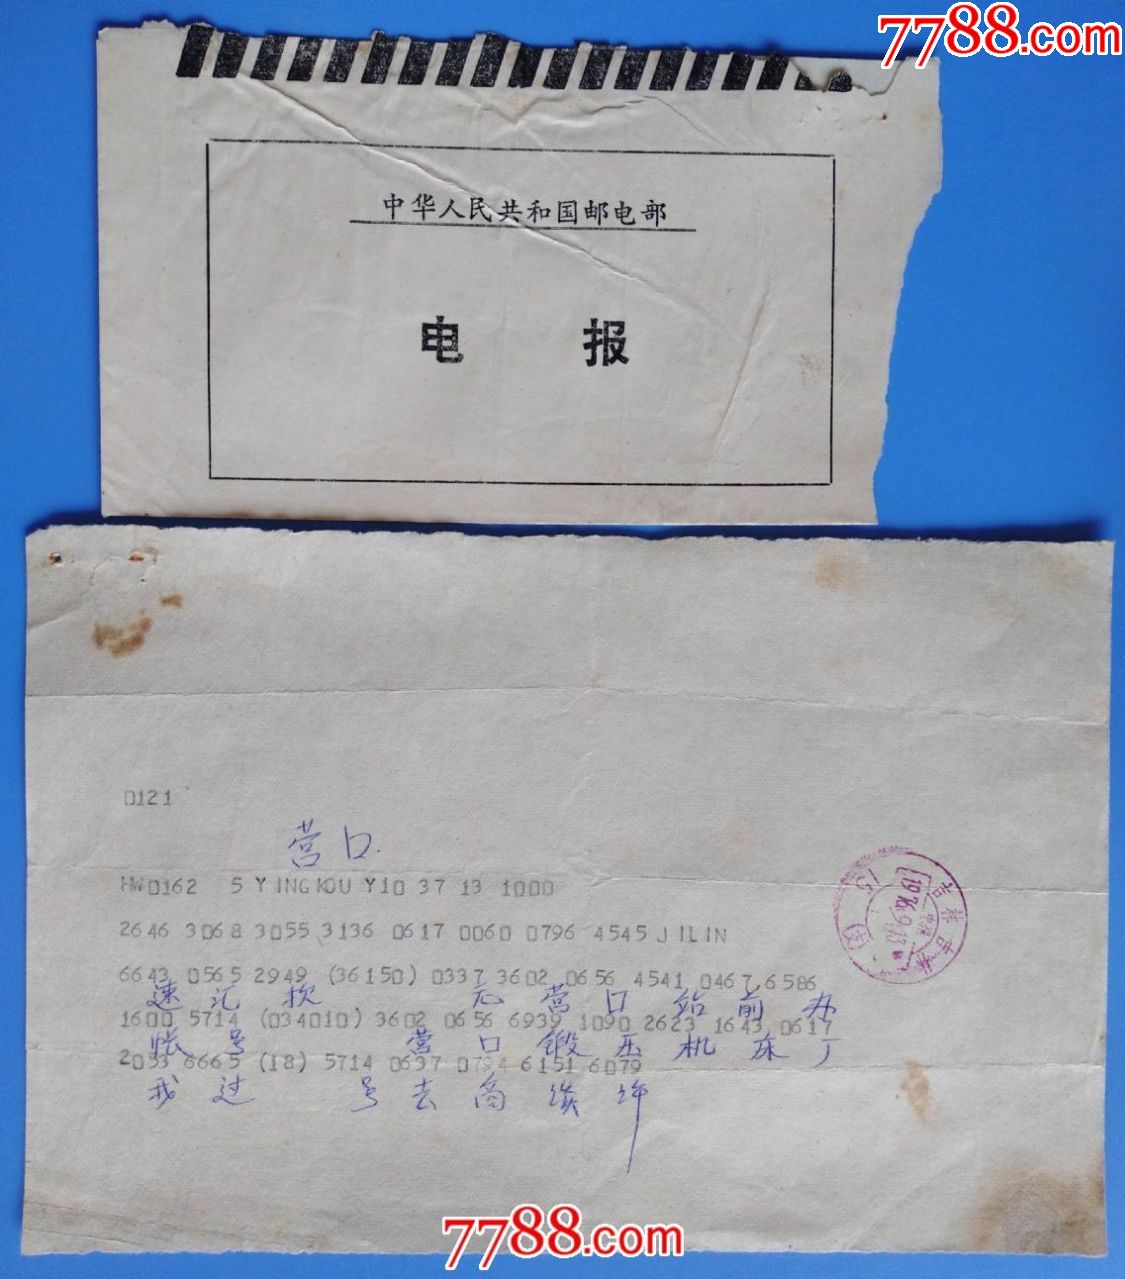 7788.com
中华人民共和国邮电部
电报
0121
营口.
HW0162 5 YINGKOU Y10 37 13 1000
2646 3068 3055 3136 0617 0060 0796 4545 JILIN
6643 0565 2949 (36150) 0337 3602 0656 4541 0467 6586
速汇款 元营口站前办
1600 5714 (034010) 3602 0656 6939 1090 2623 1643 0617
帐号 营口锻压机床厂
2053 6665 (18) 5714 0637 0794 6151 6079
我过 号去商谈
吉林吉林
1976.9.13
15
7788.com